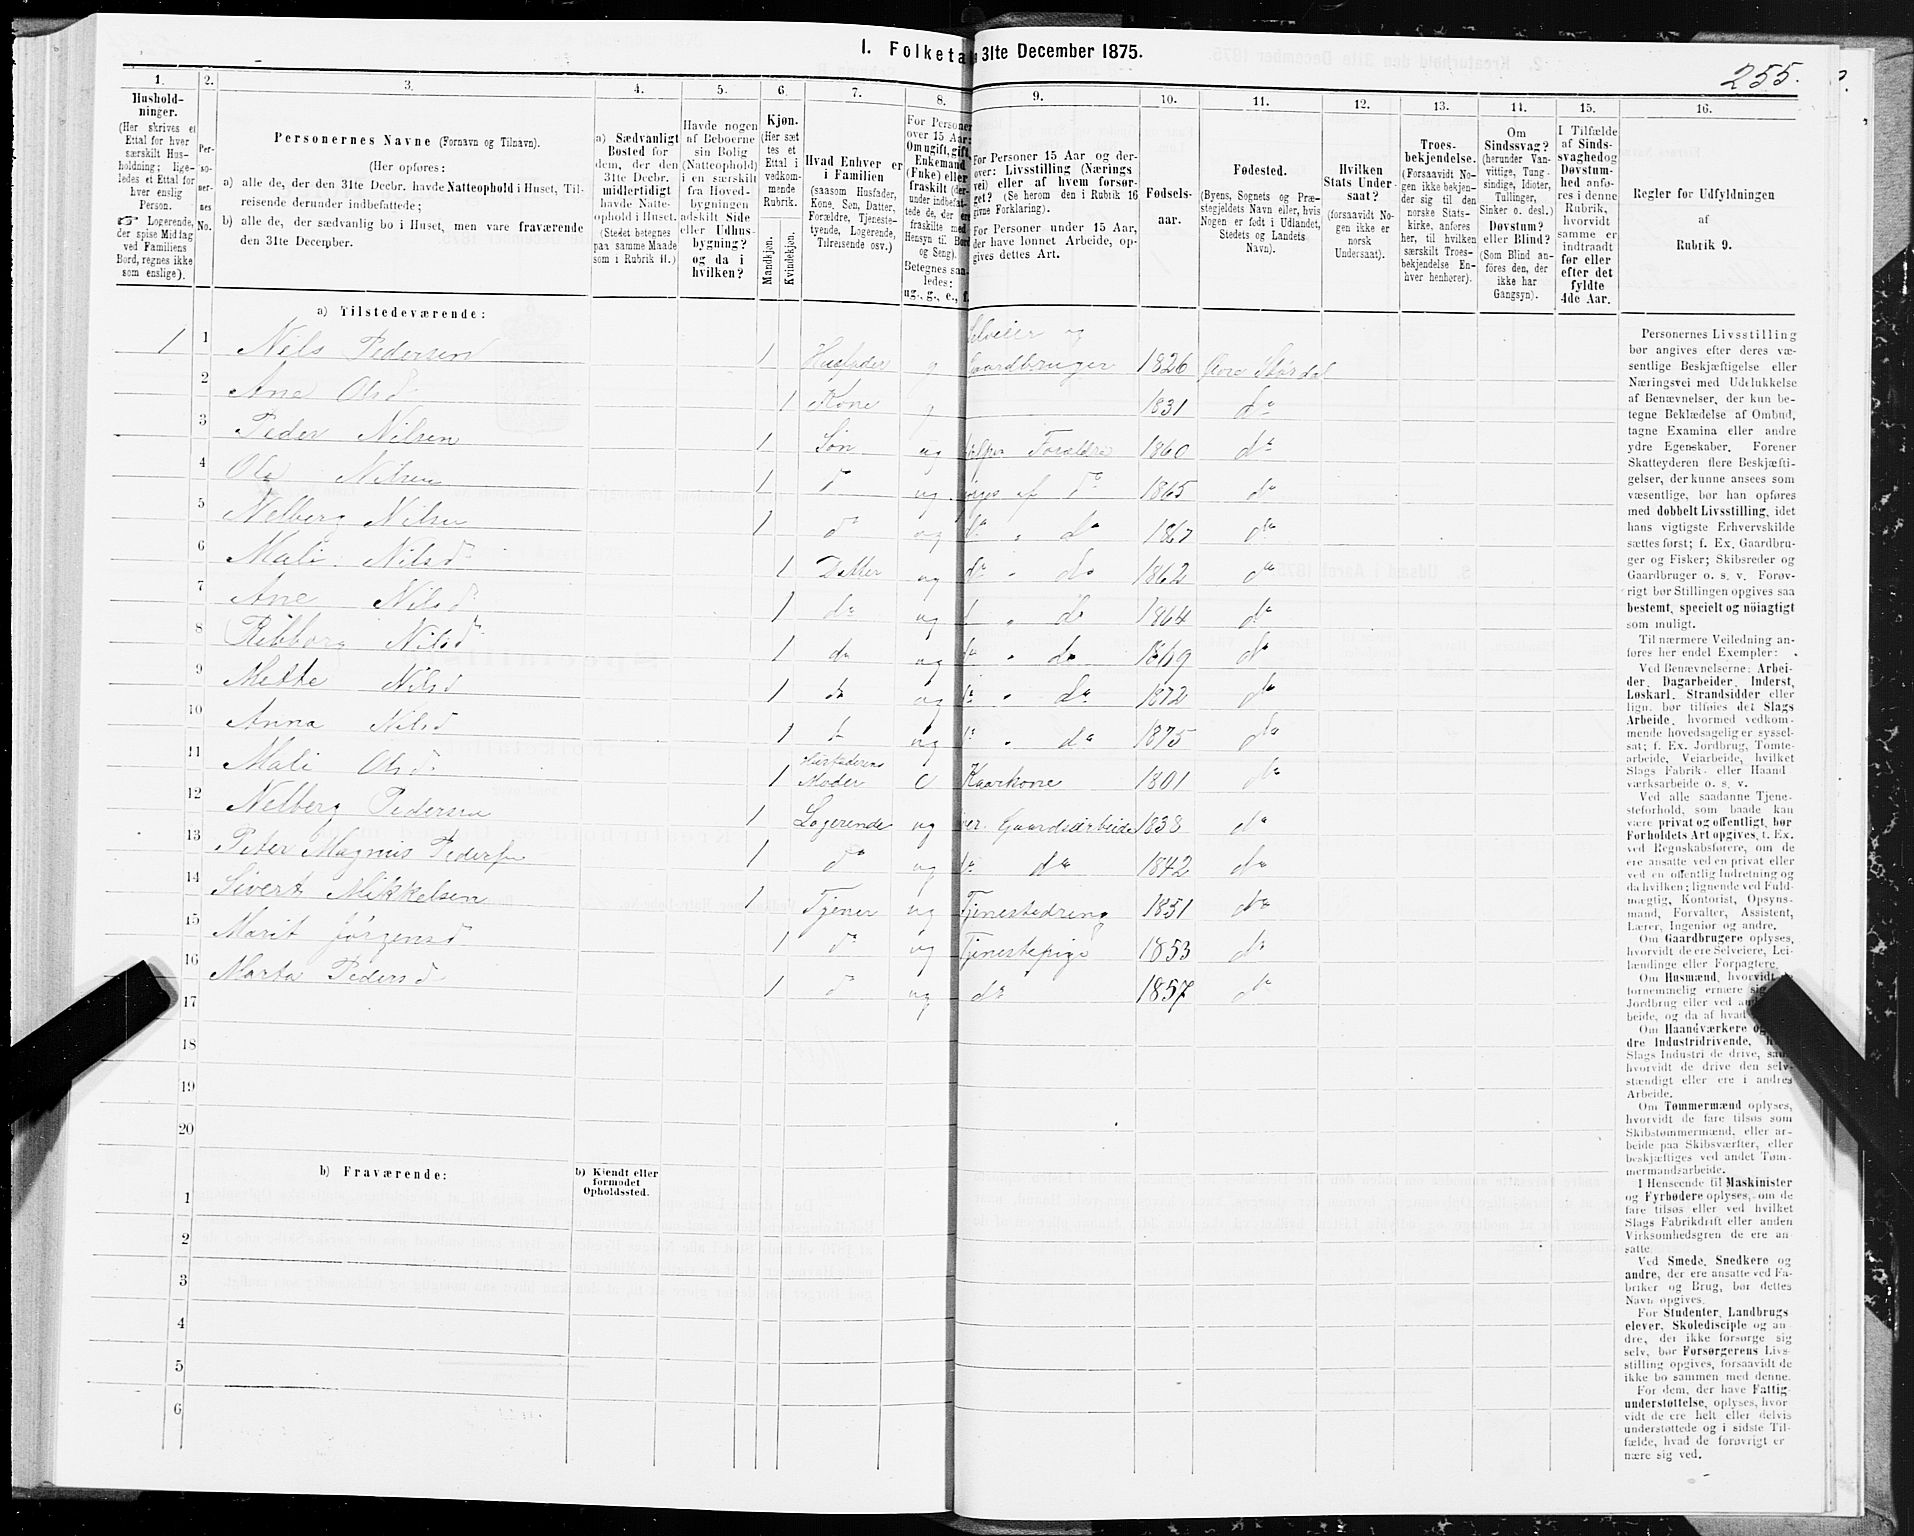 I. Folketa 31te December 1875.
255.
1.
2.
3.
4.
5.
6.
7.
8.
9.
10.
11.
12.
13.
14.
15.
16.
Hushold-
ninger.
(Her skrives et
Ettal for hver
særskilt Hus-
holdning; lige-
ledes et Ettal for
hver enslig
Person.
Logerende,
der spise Middag
ved Familiens
Bord, regnes ikke
som enslige).
Per-
soner-
nes
No.
Personernes Navne (Fornavn og Tilnavn).
(Her opføres:
a) alle de, der den 31te Decbr. havde Natteophold i Huset, Til-
reisende derunder indbefattede;
b) alle de, der sædvanlig bo i Huset, men vare fraværende
den 31te December.
a) Sædvanligt
Bosted for
dem, der den
31te Decbr.
midlertidigt
havde Natte-
ophold i Huset.
(Stedet betegnes
paa samme Maade
som i Rubrik 11.)
Havde nogen
af Beboerne
sin Bolig
(Natteophold)
i en særskilt
fra Hoved-
bygningen
adskilt Side
eller Udhus-
bygning?
og da i
hvilken?
Kjøn.
(Her sæt
tes et
Ettal i
vedkom-
mende
Rubrik.
Mandkjøn.
Kvindekjøn.
Hvad Enhver er
i Familien
(saasom Husfader,
Kone, Søn, Datter,
Forældre, Tjeneste-
tyende, Logerende,
Tilreisende osv.)
For Personer
over 15 Aar:
Om ugift, gift,
Enkemand
(Enke) eller
fraskilt (der-
under indbefat-
tede de, der ere
fraskilte med
Hensyn til Bord
og Seng).
Betegnes saa-
ledes:
ug., g., e., f.
For Personer 15 Aar og der-
over: Livsstilling (Nærings
vei) eller af hvem forsør-
get? (Se herom den i Rubrik 16
givne Forklaring).
For Personer under 15 Aar,
der have lønnet Arbeide, op-
gives dettes Art.
Fødsels-
aar.
Fødested.
(Byens, Sognets og Præ-
stegjeldets Navn eller, hvis
Nogen er født i Udlandet,
Stedets og Landets
Navn).
Hvilken
Stats Under-
saat?
(forsaavidt No-
gen ikke er
norsk
Undersaat).
Troes-
bekjendelse.
(Forsaavidt No-
gen ikke bekjen-
der sig til den
norske Stats-
kirke, anføres
her, til hvilken
særskilt Troes-
bekjendelse En-
hver henhører).
Om
Sindssvag?
(herunder Van-
vittige, Tung-
sindige, Idioter,
Tullinger,
Sinker o. desl.)
Døvstum?
eller Blind?
(Som Blind an-
føres den, der
ikke har
Gangsyn).
I Tilfælde
af Sinds-
svaghedog
Døvstum-
hed anfø-
res i denne
Rubrik,
hvorvidt
samme er
indtraadt
før eller
efter det
fyldte
4de Aar.
Regler for Udfyldningen
af
Rubrik 9.
a) Tilstedeværende:
1 1 Nels Pedersen 1 Husfader g Selveier og Gaardbruger 1826 Størdal
2 Ane Olsd 1 Kone g 1831 do
3 Peder Nilsen 1 Søn ug Forældre 1860 do
4 Ole Nilsen 1 do ug af do 1865 do
5 Nelberg Nilsen 1 do ug do " do 1867 do
6 Mali Nilsd 1 Datter ug do " do 1862 do
7 Ane Nilsd 1 do ug " do 1864 do
8 Ribborg Nilsd 1 do ug do " do 1869 do
9 Mette Nilsd 1 do ug do " do 1872 do
10 Anna Nilsd 1 ug do " do 1875 do
11 Mali Olsd 1 Husfaderens Moder e Kaarkone 1801 do
12 Nelberg Pedersen 1 Logerende ug Gaardsarbeide 1838 do
13 Peter Magnus Pedersen 1 do ug do do 1842 do
14 Sivert Mikkelsen 1 Tjener ug Tjenestedreng 1851 do
15 Marit Jørgensd 1 do ug Tjenestepige 1853 do
16 Marta Pedersd 1 do ug do 1857 do
17
18
19
20
b) Fraværende:
b) Kjendt eller
formodet
Opholdssted.
1
2
3
4
5
6
Personernes Livsstilling
bør angives efter deres væ-
sentlige Beskjæftigelse eller
Næringsvei med Udelukkelse
af Benævnelser, der kun be-
tegne Beklædelse af Ombud,
tagne Examina eller andre
ydre Egenskaber. Forener
Skatteyderen flere Beskjæfti-
gelser, der kunne ansees som
væsentlige, bør han opføres
med dobbelt Livsstilling, idet
hans vigtigste Erhvervskilde
sættes først; f. Ex. Gaardbru-
ger og Fisker; Skibsreder og
Gaardbruger o. s. v. Forøv-
rigt bør Stillingen opgives saa
bestemt, specielt og nöiagtigt
som muligt.
Til nærmere Veiledning an-
føres her endel Exempler:
Ved Benævnelserne: Arbei-
der, Dagarbeider, Inderst,
Løskarl, Strandsidder eller
lign. bør tilføies det Slags
Arbeide, hvormed vedkom-
mende hovedsagelig er syssel-
sat; f. Ex. Jordbrug, Tomte-
arbeide, Veiarbeide, hvilket
Slags Fabrik- eller Haand
værksarbeide o. s. v.
Ved alle saadanne Tjene-
steforhold, som baade kan
være privat og offentligt, bør
Forholdets Art opgives, t. Ex.
ved Regnskabsførere, om de
ere ansatte ved en privat eller
ved en offentlig Indretning og
da hvilken; lignende ved Fuld-
mægtig, Kontorist, Opsyns-
mand, Forvalter, Assistent,
Lærer, Ingeniør og andre.
Om Gaardbrugere oplyses,
hvorvidt de ere Selveiere, Lei-
lændinge eller Forpagtere.
Om Husmænd, hvorvidt
fornemmelig ernære sig
Jordbrug eller ved
beide, og da af hvad
Om Haandværkere
dre Industridrivende,
Slags Industri de drive,
hvorvidt de drive den selv-
stændigt eller ere i andres
Arbeide.
Om Tømmermænd oplyses,
hvorvidt de fare tilsøs som
Skibstømmermænd, eller ar-
beide paa Skibsværfter, eller
beskjæftiges ved andet Tøm-
mermandsarbeide.
I Henseende til Maskinister
og Fyrbødere oplyses, om de
fare tilsøs eller ved hvilket
Slags Fabrikdrift eller anden
Virksomhedsgren de ere an-
satte.
Ved Smede, Snedkere og
andre, der ere ansatte ved Fa-
briker og Brug, bør dettes
Navn opgives.
For Studenter, Landbrugs
elever, Skoledisciple og an-
dre, der ikke forsørge sig
selv, bør Forsørgerens Livs-
stilling opgives, forsaavidt de
ikke bo sammen med denne.
For dem, der have Fattig-
understøttelse, oplyses, hvor
vidt de ere helt eller delvis
understøttede og i sidste Til-
fælde, hvad de forøvrigt er
nære sig ved.